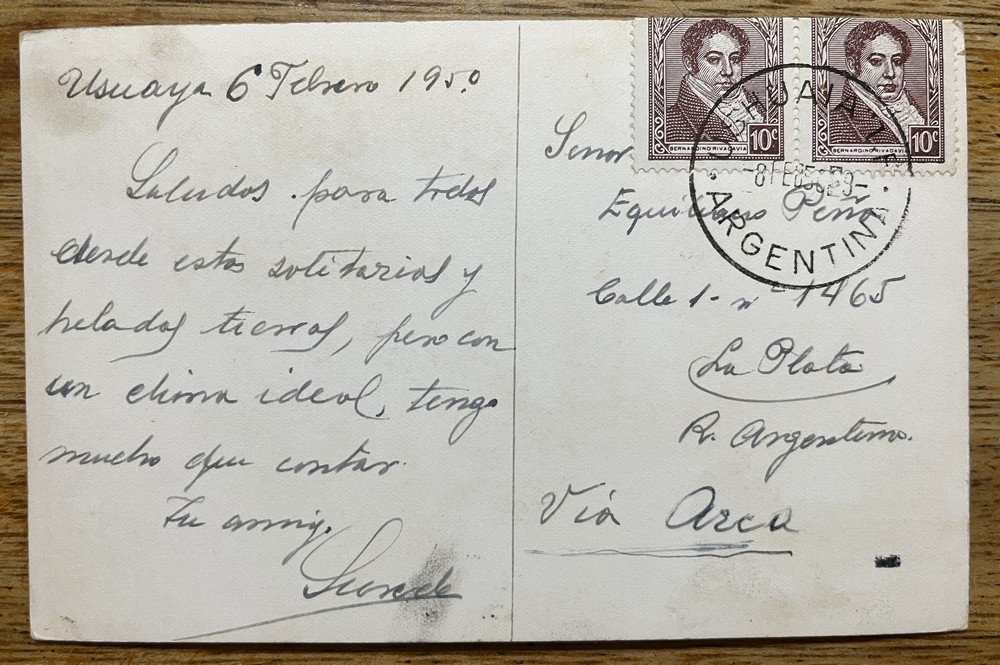 Usuaya 6 Febrero 1950
Saludos para todos
desde estas solitarias y
heladas tierras, pero con
un clima ideal, tengo
mucho que contar.
Tu amig.
10c
BERNARDINO RIVADAVIA
10c
BERNARDINO RIVADAVIA
USHUAIA
-8 FEB 50
ARGENTINA
Señor
Peña
Calle 1- nº 1465
La Plata
R. Argentina.
Vía Arca